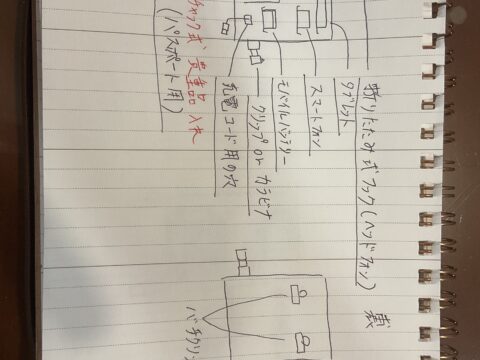 折りたたみ式フック(ヘッドフォン)
タブレット
スマートフォン
モバイルバッテリー
クリップ or カラビナ
充電コード用の穴
チャック式 貴重品入れ
(パスポート用)
裏